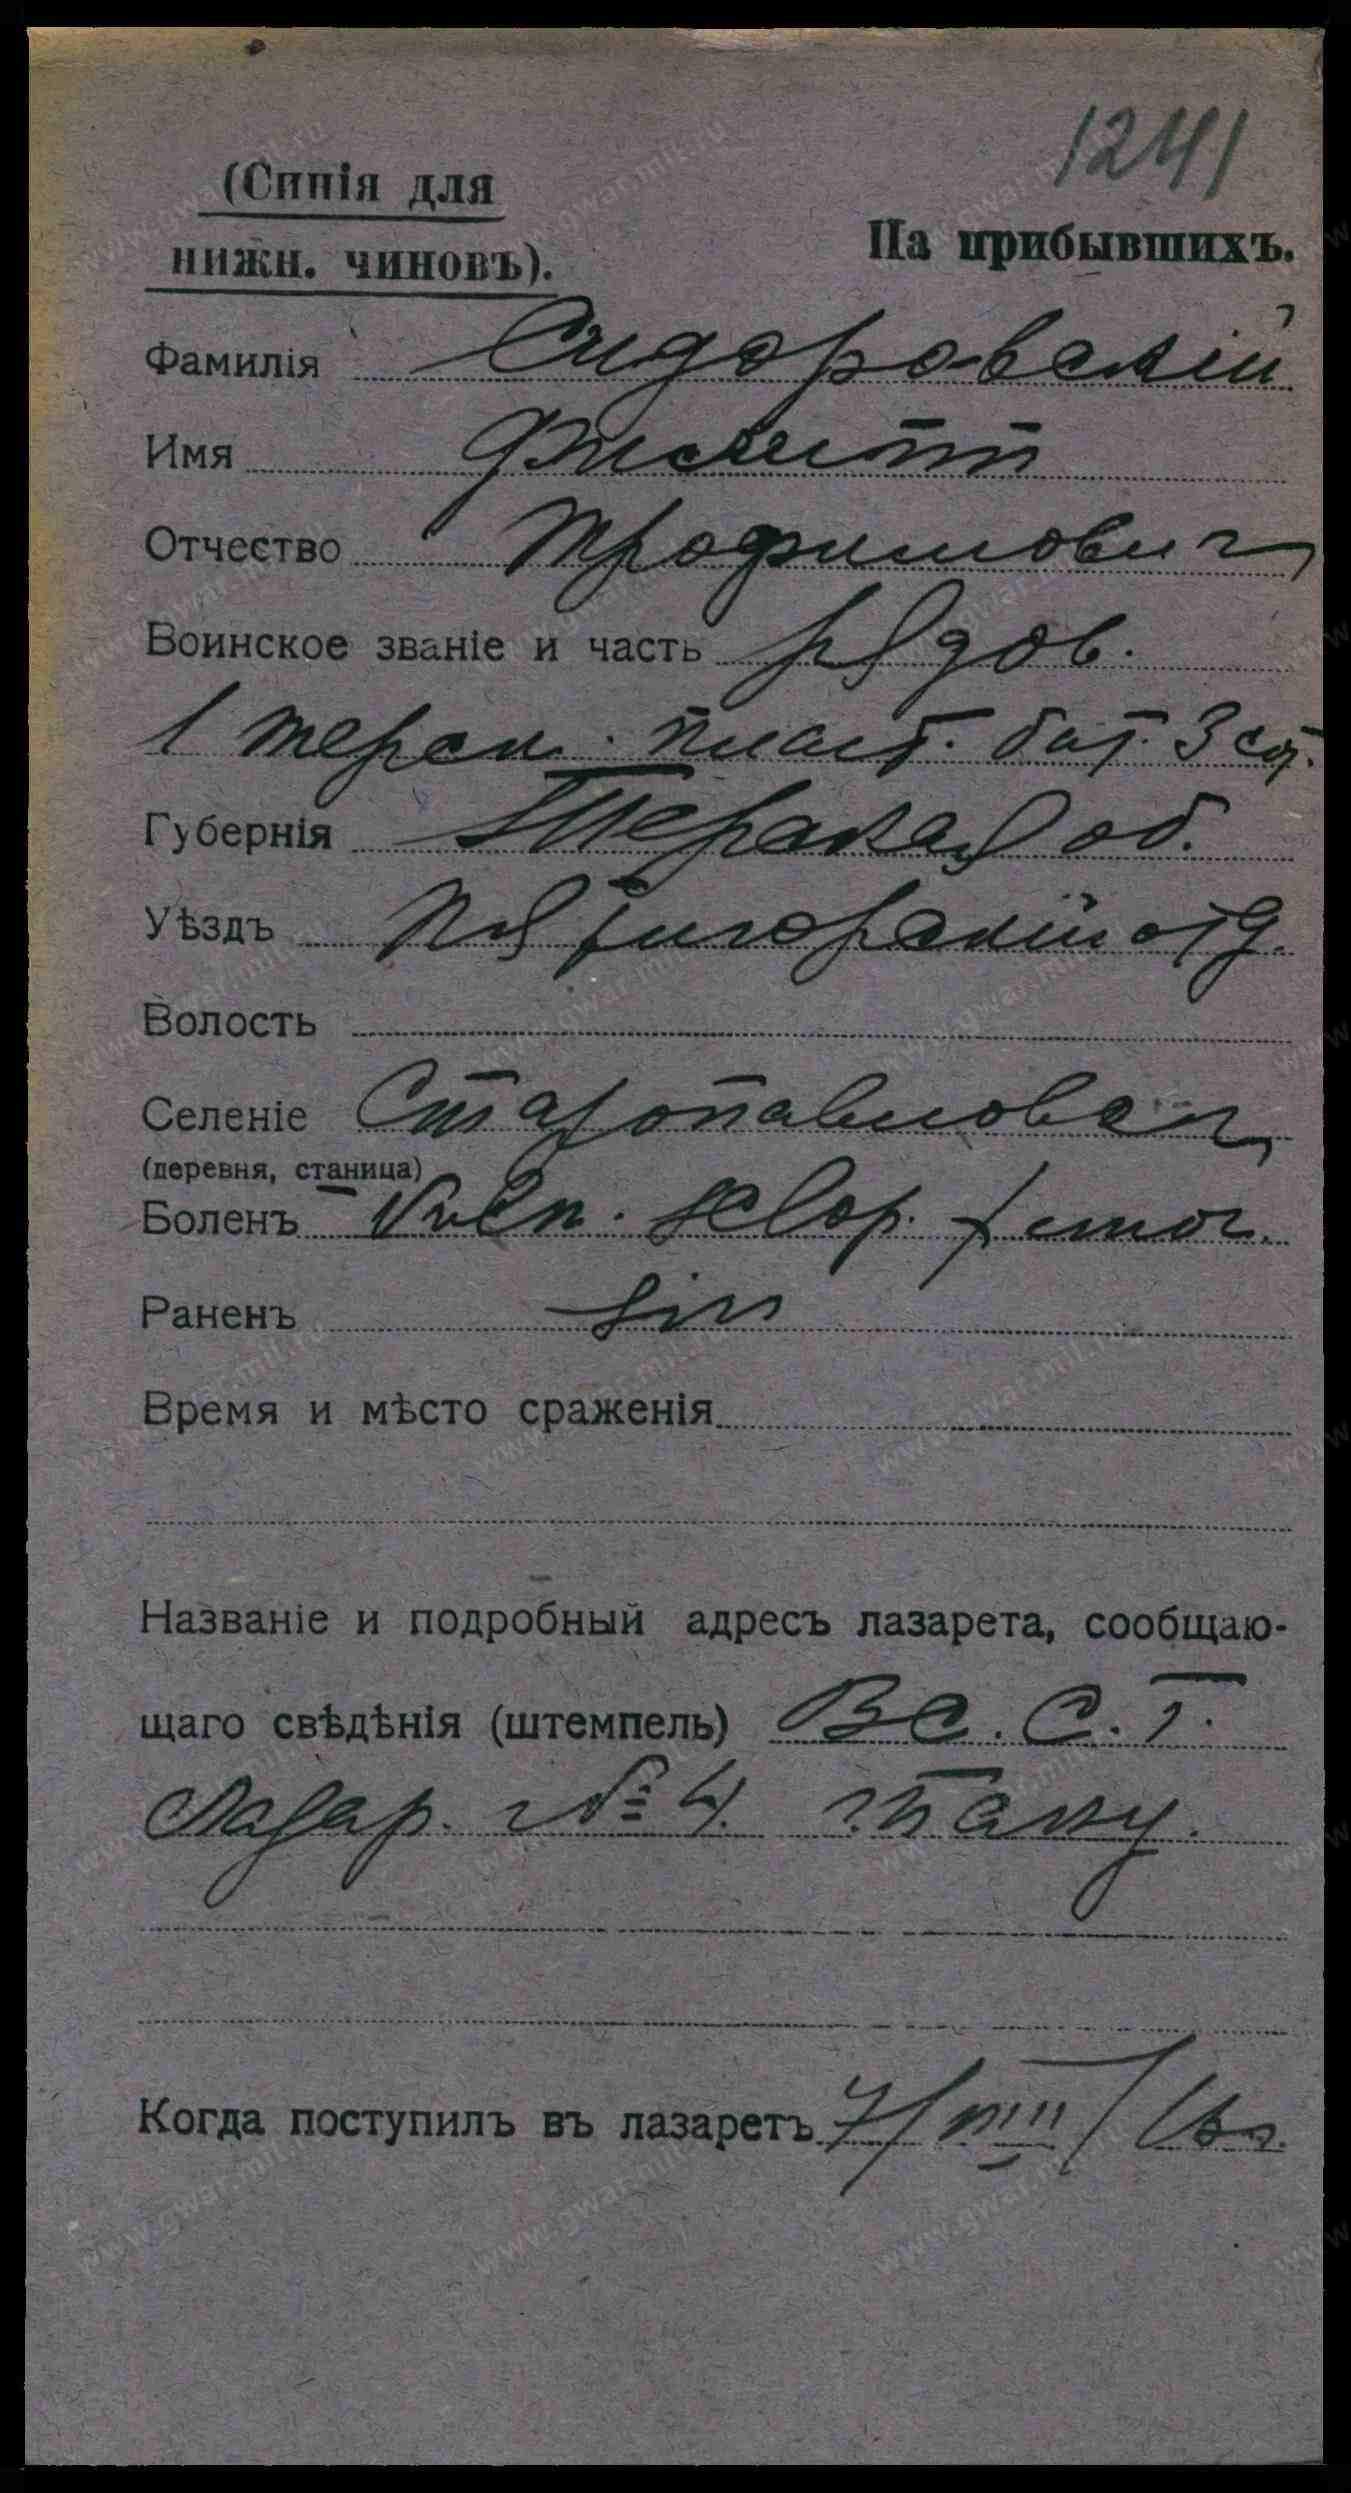 1241
(Синія для
нижн. чиновъ).
На прибывшихъ.
Фамилія Сидоровскій
Имя Филипп
Отчество Трофимович
Воинское званіе и часть рядов.
1 терск. пласт. бат. 3 сот.
Губернія Терская об.
Уѣздъ Пятигорскій отд.
Волость
Селеніе Старопавловск
(деревня, станица)
Боленъ Vuln. sclop. femor.
Раненъ sin
Время и мѣсто сраженія
Названіе и подробный адресъ лазарета, сообщаю-
щаго свѣдѣнія (штемпель) Вс. С. Г.
Лазар. № 4. г. Баку.
Когда поступилъ въ лазаретъ 7/VIII/16 г.
www.gwar.mil.ru